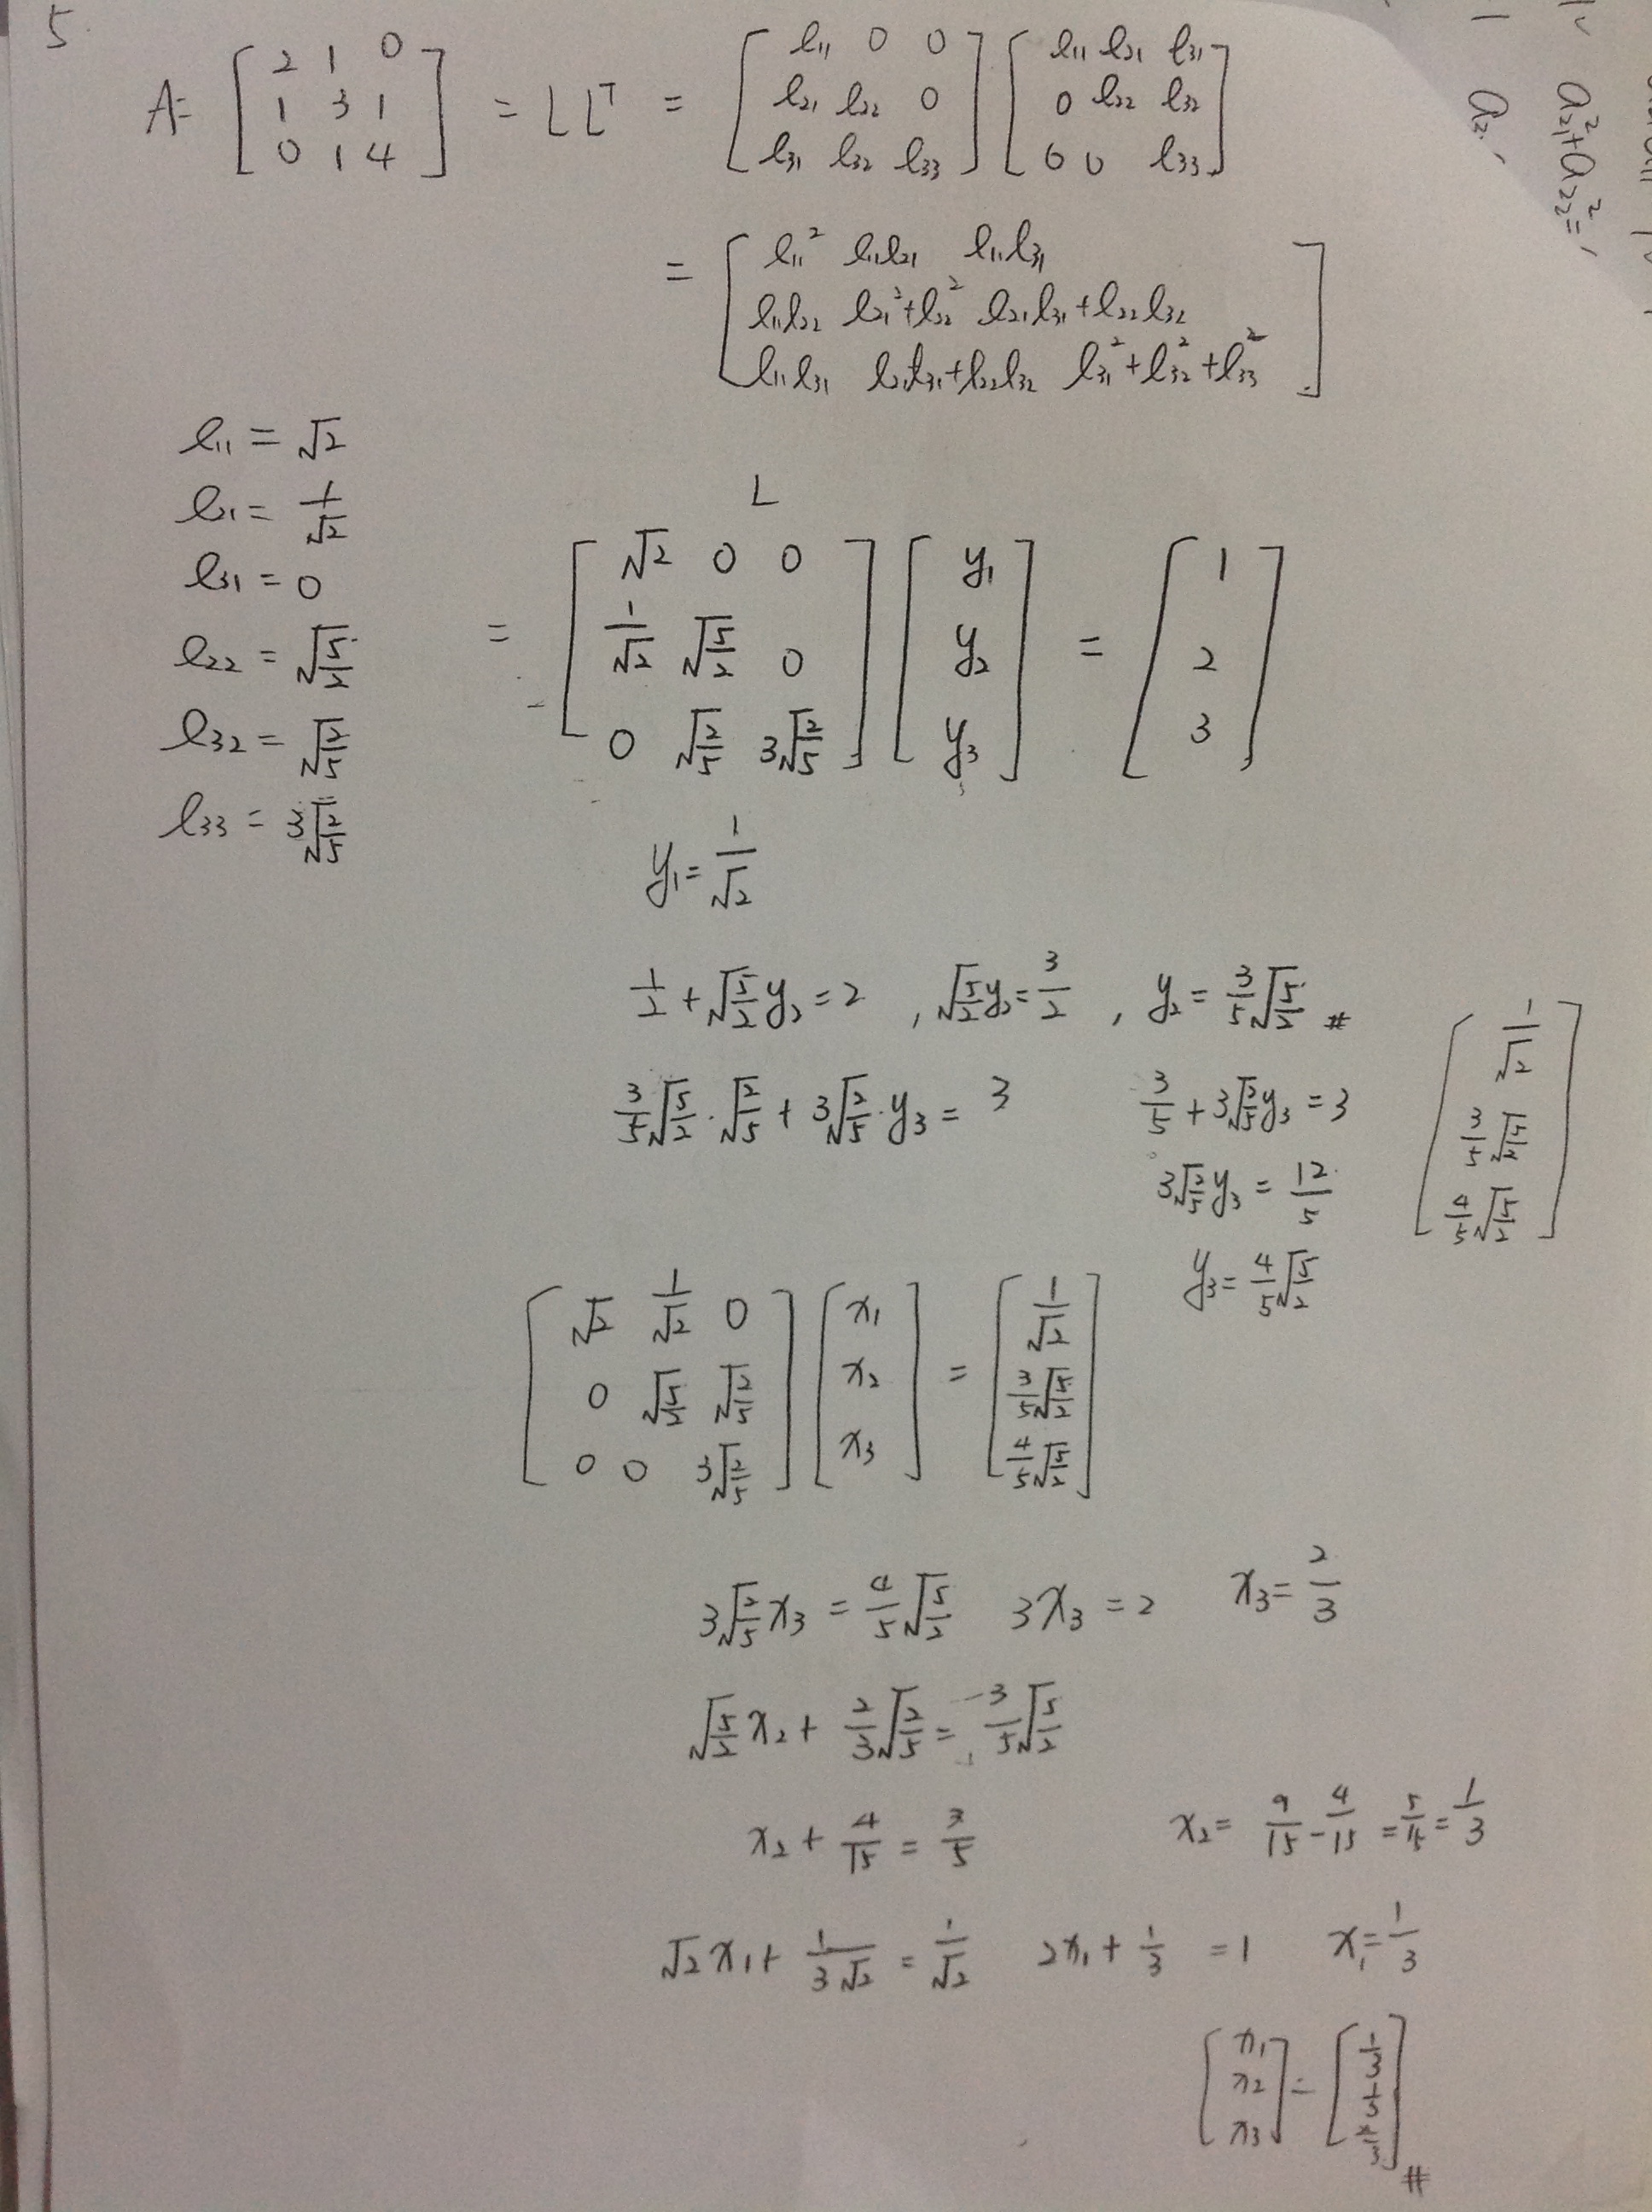 5.
A = [ 2 1 0 ; 1 3 1 ; 0 1 4 ] = L Lᵀ = [ l₁₁ 0 0 ; l₂₁ l₂₂ 0 ; l₃₁ l₃₂ l₃₃ ] [ l₁₁ l₂₁ l₃₁ ; 0 l₂₂ l₃₂ ; 0 0 l₃₃ ]
= [ l₁₁² l₁₁l₂₁ l₁₁l₃₁ ; l₁₁l₂₂ l₂₁²+l₂₂² l₂₁l₃₁+l₂₂l₃₂ ; l₁₁l₃₁ l₂₁l₃₁+l₂₂l₃₂ l₃₁²+l₃₂²+l₃₃² ]
l₁₁ = √2
l₂₁ = 1/√2
l₃₁ = 0
l₂₂ = √(5/2)
l₃₂ = √(2/5)
l₃₃ = 3√(2/5)
L
= [ √2 0 0 ; 1/√2 √(5/2) 0 ; 0 √(2/5) 3√(2/5) ] [ y₁ ; y₂ ; y₃ ] = [ 1 ; 2 ; 3 ]
y₁ = 1/√2
1/2 + √(5/2) y₂ = 2 , √(5/2) y₂ = 3/2 , y₂ = 3/5 √(5/2) #
3/5 √(5/2) · √(2/5) + 3√(2/5) · y₃ = 3
3/5 + 3√(2/5) y₃ = 3
3√(2/5) y₃ = 12/5
y₃ = 4/5 √(5/2)
[ 1/√2 ; 3/5 √(5/2) ; 4/5 √(5/2) ]
[ √2 1/√2 0 ; 0 √(5/2) √(2/5) ; 0 0 3√(2/5) ] [ x₁ ; x₂ ; x₃ ] = [ 1/√2 ; 3/5 √(5/2) ; 4/5 √(5/2) ]
3√(2/5) x₃ = 4/5 √(5/2) 3x₃ = 2 x₃ = 2/3
√(5/2) x₂ + 2/3 √(2/5) = 3/5 √(5/2)
x₂ + 4/15 = 3/5 x₂ = 9/15 - 4/15 = 5/15 = 1/3
√2 x₁ + 1/(3√2) = 1/√2 2x₁ + 1/3 = 1 x₁ = 1/3
[ x₁ ; x₂ ; x₃ ] = [ 1/3 ; 1/3 ; 2/3 ] #
a₂₁² + a₂₂² =